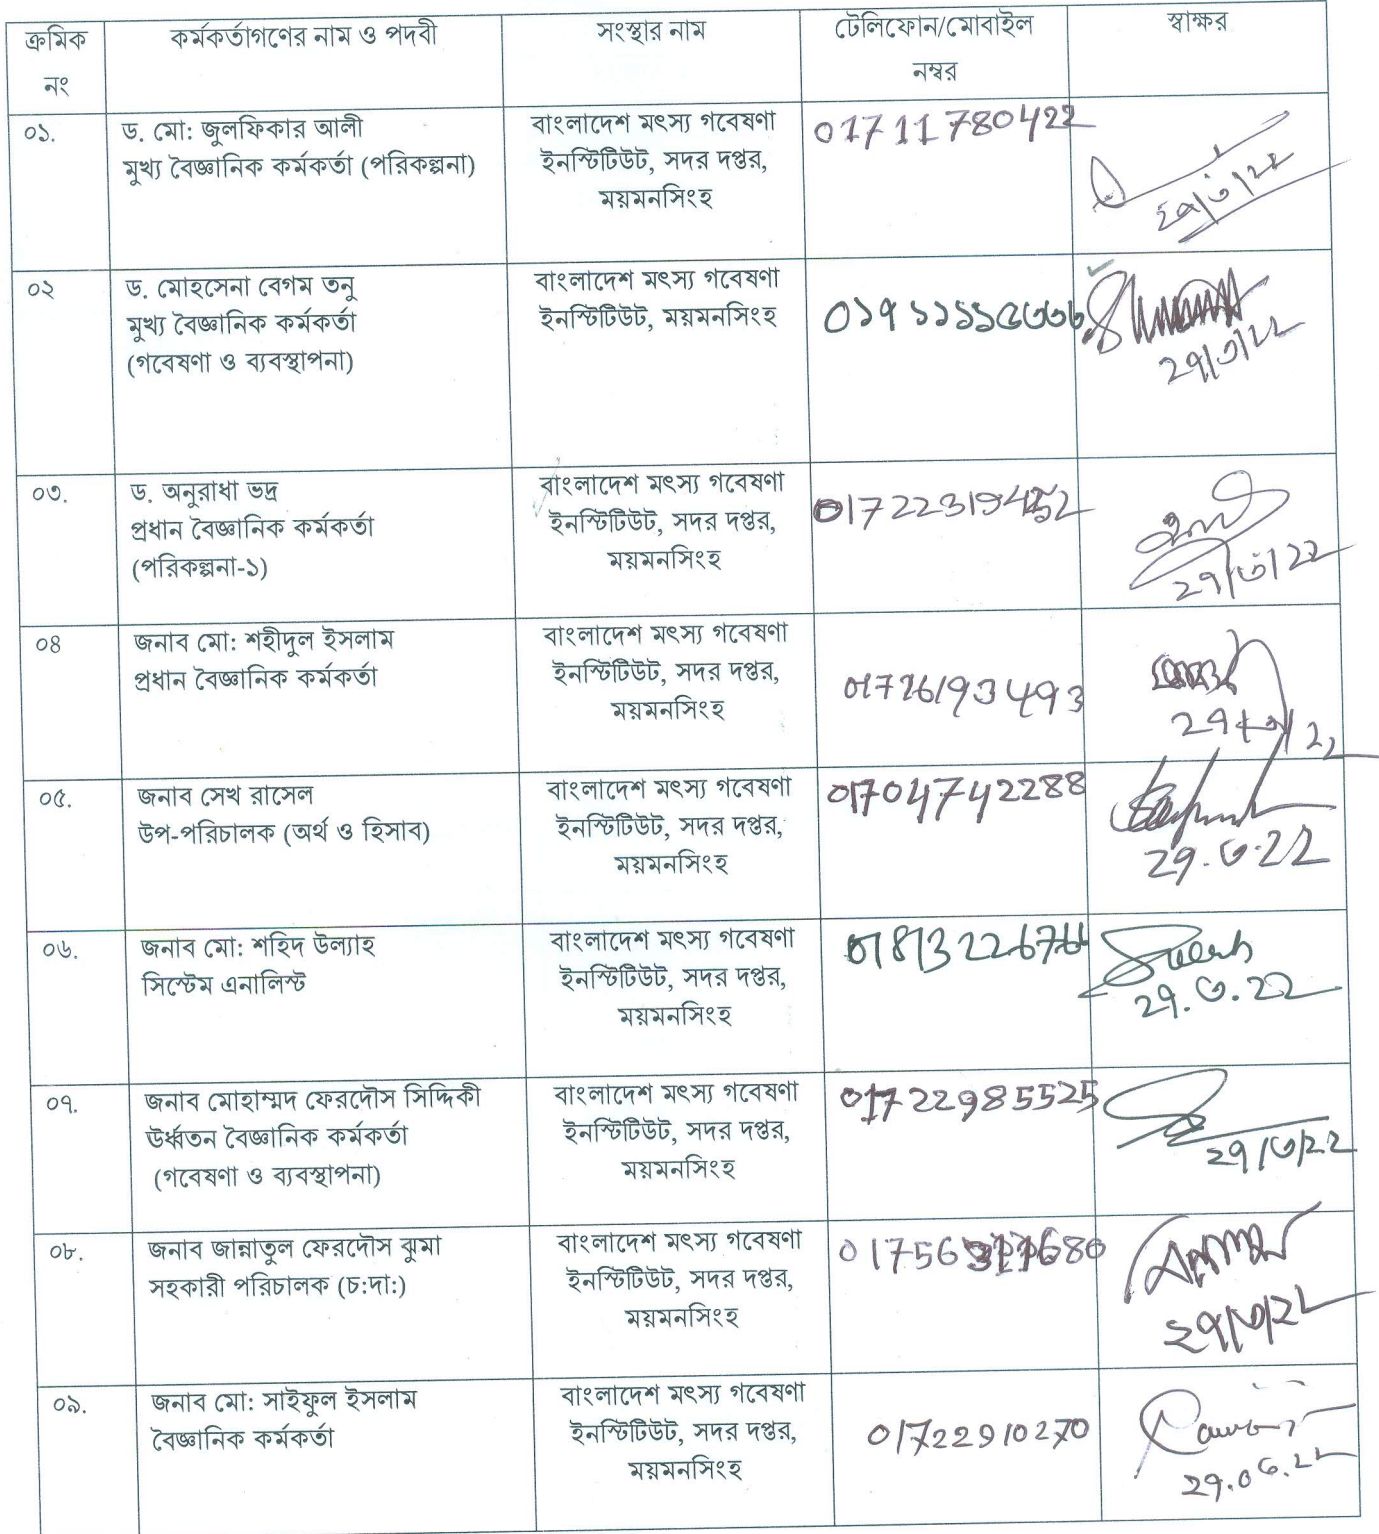 ক্রমিক নং
কর্মকর্তাগণের নাম ও পদবী
সংস্থার নাম
টেলিফোন/মোবাইল
নম্বর
স্বাক্ষর
০১.
ড. মো: জুলফিকার আলী
মুখ্য বৈজ্ঞানিক কর্মকর্তা (পরিকল্পনা)
বাংলাদেশ মৎস্য গবেষণা
ইনস্টিটিউট, সদর দপ্তর,
ময়মনসিংহ
01711780422
২৯/৩/২২
০২
ড. মোহসেনা বেগম তনু
মুখ্য বৈজ্ঞানিক কর্মকর্তা
(গবেষণা ও ব্যবস্থাপনা)
বাংলাদেশ মৎস্য গবেষণা
ইনস্টিটিউট, ময়মনসিংহ
২৯/৩/২২
০৩.
ড. অনুরাধা ভদ্র
প্রধান বৈজ্ঞানিক কর্মকর্তা
(পরিকল্পনা-১)
বাংলাদেশ মৎস্য গবেষণা
ইনস্টিটিউট, সদর দপ্তর,
ময়মনসিংহ
২৯/৩/২২
০৪
জনাব মো: শহীদুল ইসলাম
প্রধান বৈজ্ঞানিক কর্মকর্তা
বাংলাদেশ মৎস্য গবেষণা
ইনস্টিটিউট, সদর দপ্তর,
ময়মনসিংহ
01726193493
২৯/৩/২২
০৫.
জনাব সেখ রাসেল
উপ-পরিচালক (অর্থ ও হিসাব)
বাংলাদেশ মৎস্য গবেষণা
ইনস্টিটিউট, সদর দপ্তর,
ময়মনসিংহ
01704742288
২৯.৩.২২
০৬.
জনাব মো: শহিদ উল্যাহ
সিস্টেম এনালিস্ট
বাংলাদেশ মৎস্য গবেষণা
ইনস্টিটিউট, সদর দপ্তর,
ময়মনসিংহ
২৯.৩.২২
০৭.
জনাব মোহাম্মদ ফেরদৌস সিদ্দিকী
উর্ধ্বতন বৈজ্ঞানিক কর্মকর্তা
(গবেষণা ও ব্যবস্থাপনা)
বাংলাদেশ মৎস্য গবেষণা
ইনস্টিটিউট, সদর দপ্তর,
ময়মনসিংহ
01722985525
২৯/৩/২২
০৮.
জনাব জান্নাতুল ফেরদৌস ঝুমা
সহকারী পরিচালক (চ:দা:)
বাংলাদেশ মৎস্য গবেষণা
ইনস্টিটিউট, সদর দপ্তর,
ময়মনসিংহ
২৯/৩/২২
০৯.
জনাব মো: সাইফুল ইসলাম
বৈজ্ঞানিক কর্মকর্তা
বাংলাদেশ মৎস্য গবেষণা
ইনস্টিটিউট, সদর দপ্তর,
ময়মনসিংহ
01722910270